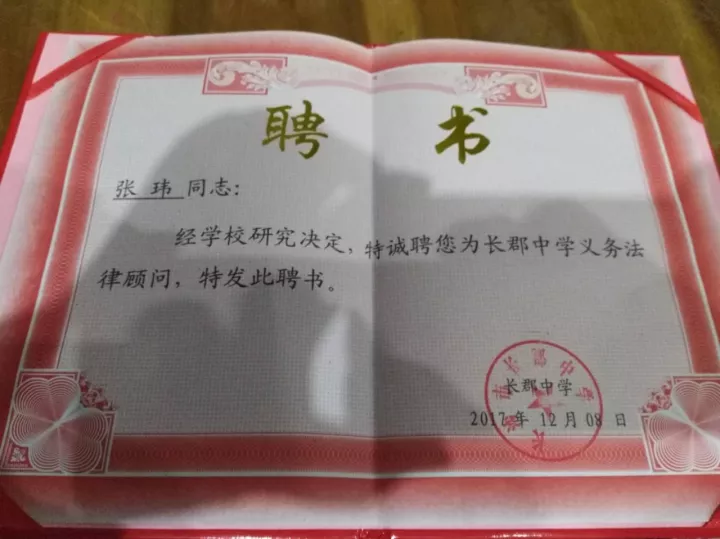 聘书
张玮同志：
经学校研究决定，特诚聘您为长郡中学义务法
律顾问，特发此聘书。
长郡中学
2017年12月08日
长沙市长郡中学